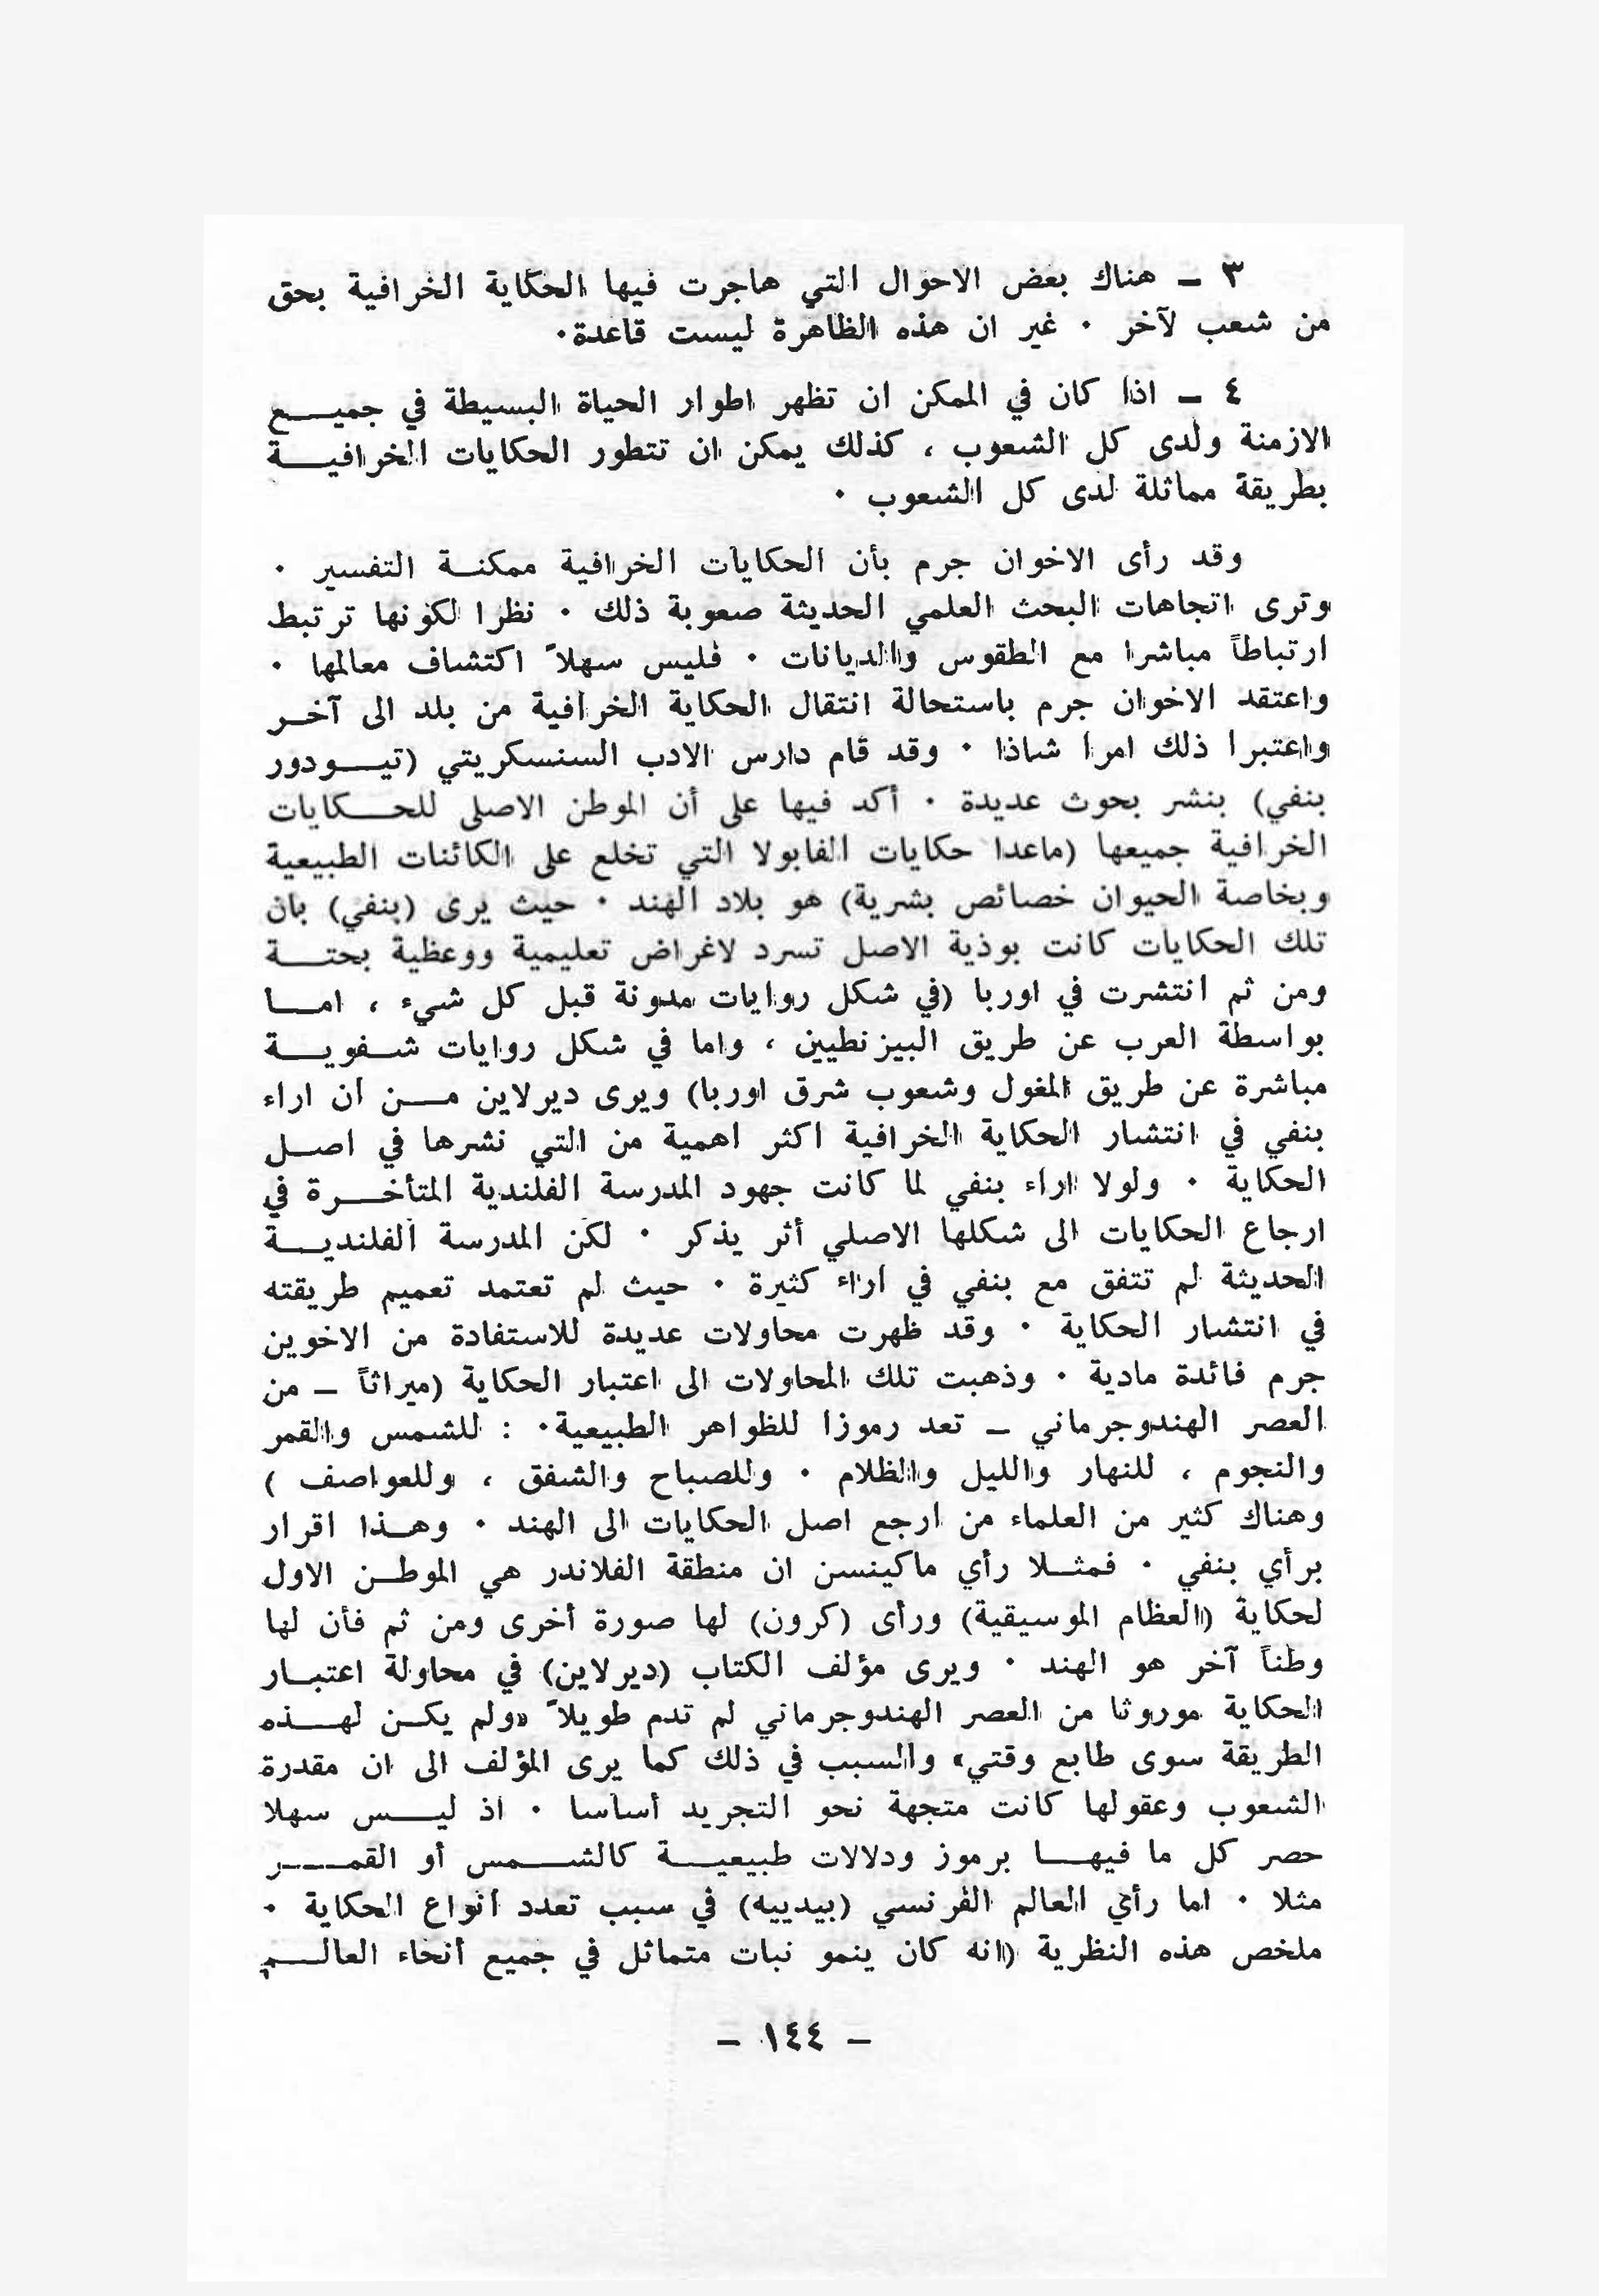 ٣ ــ هناك بعض الاحوال التي هاجرت فيها الحكاية الخرافية بحق
من شعب لآخر ٠ غير ان هذه الظاهرة ليست قاعدة٠
٤ ــ اذا كان في الممكن ان تظهر اطوار الحياة البسيطة في جميــع
الازمنة ولدى كل الشعوب ، كذلك يمكن ان تتطور الحكايات الخرافيــة
بطريقة مماثلة لدى كل الشعوب ٠
وقد رأى الاخوان جرم بأن الحكايات الخرافية ممكنــة التفسير ٠
وترى اتجاهات البحث العلمي الحديثة صعوبة ذلك ٠ نظرا لكونها ترتبط
ارتباطاً مباشرا مع الطقوس والديانات ٠ فليس سهلاً اكتشاف معالمها ٠
واعتقد الاخوان جرم باستحالة انتقال الحكاية الخرافية من بلد الى آخــر
واعتبرا ذلك امرا شاذا ٠ وقد قام دارس الادب السنسكريتي (تيــودور
بنفي) بنشر بحوث عديدة ٠ أكد فيها على أن الموطن الاصلى للحــكايات
الخرافية جميعها (ماعدا حكايات الفابولا التي تخلع على الكائنات الطبيعية
وبخاصة الحيوان خصائص بشرية) هو بلاد الهند ٠ حيث يرى (بنفي) بان
تلك الحكايات كانت بوذية الاصل تسرد لاغراض تعليمية ووعظية بحتــة
ومن ثم انتشرت في اوربا (في شكل روايات مدونة قبل كل شيء ، امــا
بواسطة العرب عن طريق البيزنطيين ، واما في شكل روايات شــفويــة
مباشرة عن طريق المغول وشعوب شرق اوربا) ويرى ديرلاين مــن ان اراء
بنفي في انتشار الحكاية الخرافية اكثر اهمية من التي نشرها في اصــل
الحكاية ٠ ولولا اراء بنفي لما كانت جهود المدرسة الفلندية المتأخــرة في
ارجاع الحكايات الى شكلها الاصلي أثر يذكر ٠ لكن المدرسة الفلنديــة
الحديثة لم تتفق مع بنفي في اراء كثيرة ٠ حيث لم تعتمد تعميم طريقته
في انتشار الحكاية ٠ وقد ظهرت محاولات عديدة للاستفادة من الاخوين
جرم فائدة مادية ٠ وذهبت تلك المحاولات الى اعتبار الحكاية (ميراثاً ــ من
العصر الهندوجرماني ــ تعد رموزا للظواهر الطبيعية٠ : للشمس والقمر
والنجوم ، للنهار والليل والظلام ٠ وللصباح والشفق ، وللعواصف )
وهناك كثير من العلماء من ارجع اصل الحكايات الى الهند ٠ وهــذا اقرار
برأي بنفي ٠ فمثــلا رأي ماكينسن ان منطقة الفلاندر هي الموطــن الاول
لحكاية (العظام الموسيقية) ورأى (كرون) لها صورة أخرى ومن ثم فأن لها
وطناً آخر هو الهند ٠ ويرى مؤلف الكتاب (ديرلاين) في محاولة اعتبــار
الحكاية موروثا من العصر الهندوجرماني لم تدم طويلاً «ولم يكــن لهــذه
الطريقة سوى طابع وقتي» والسبب في ذلك كما يرى المؤلف الى ان مقدرة
الشعوب وعقولها كانت متجهة نحو التجريد أساسا ٠ اذ ليــس سهلا
حصر كل ما فيهــا برموز ودلالات طبيعيــة كالشــمس أو القمــر
مثلا ٠ اما رأي العالم الفرنسي (بيدييه) في سبب تعدد أنواع الحكاية ٠
ملخص هذه النظرية (انه كان ينمو نبات متماثل في جميع أنحاء العالــم
ــ ١٤٤ ــ